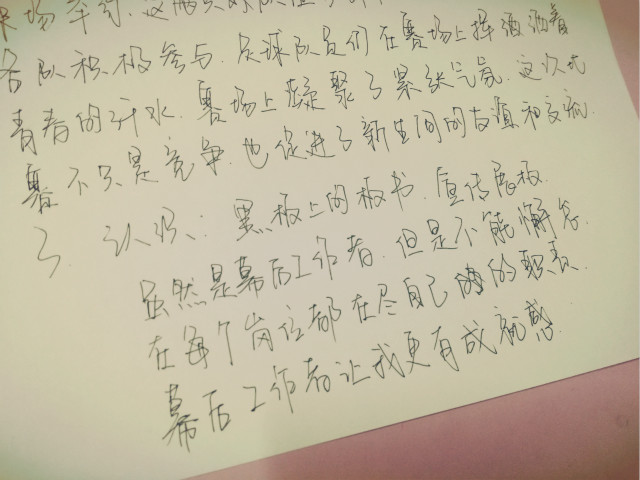 球场举行.这两只球队
各队积极参与.足球队员们在赛场上挥洒洒着
青春的汗水.赛场上凝聚了紧张气氛.这次比
赛不只是竞争.也促进了新生间的友谊和交流.
3. 认识:黑板上的板书.宣传展板.
虽然是幕后工作者.但是不能懈怠.
在每个岗位都在尽自己的职责.
幕后工作者让我更有成就感.